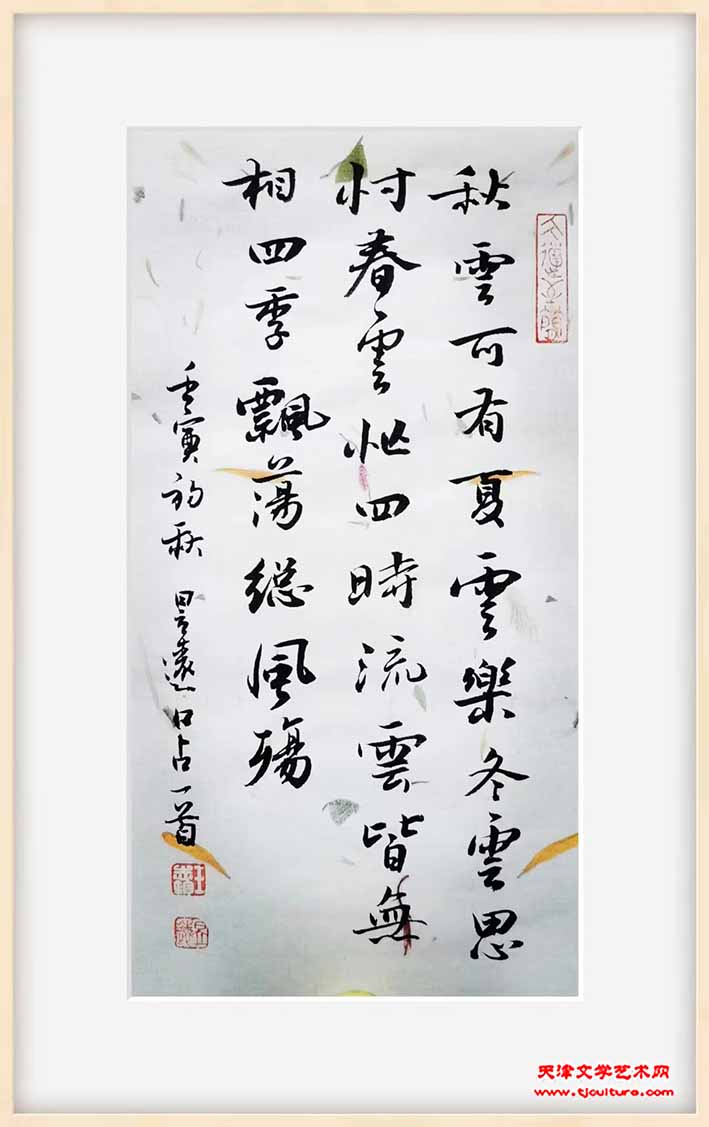 秋雲可有夏雲樂冬雲思
忖春雲忙四時流雲皆無
相四季飄蕩總風殤
壬寅初秋 昱遠口占一首
天津文学艺术网
www.tjculture.com